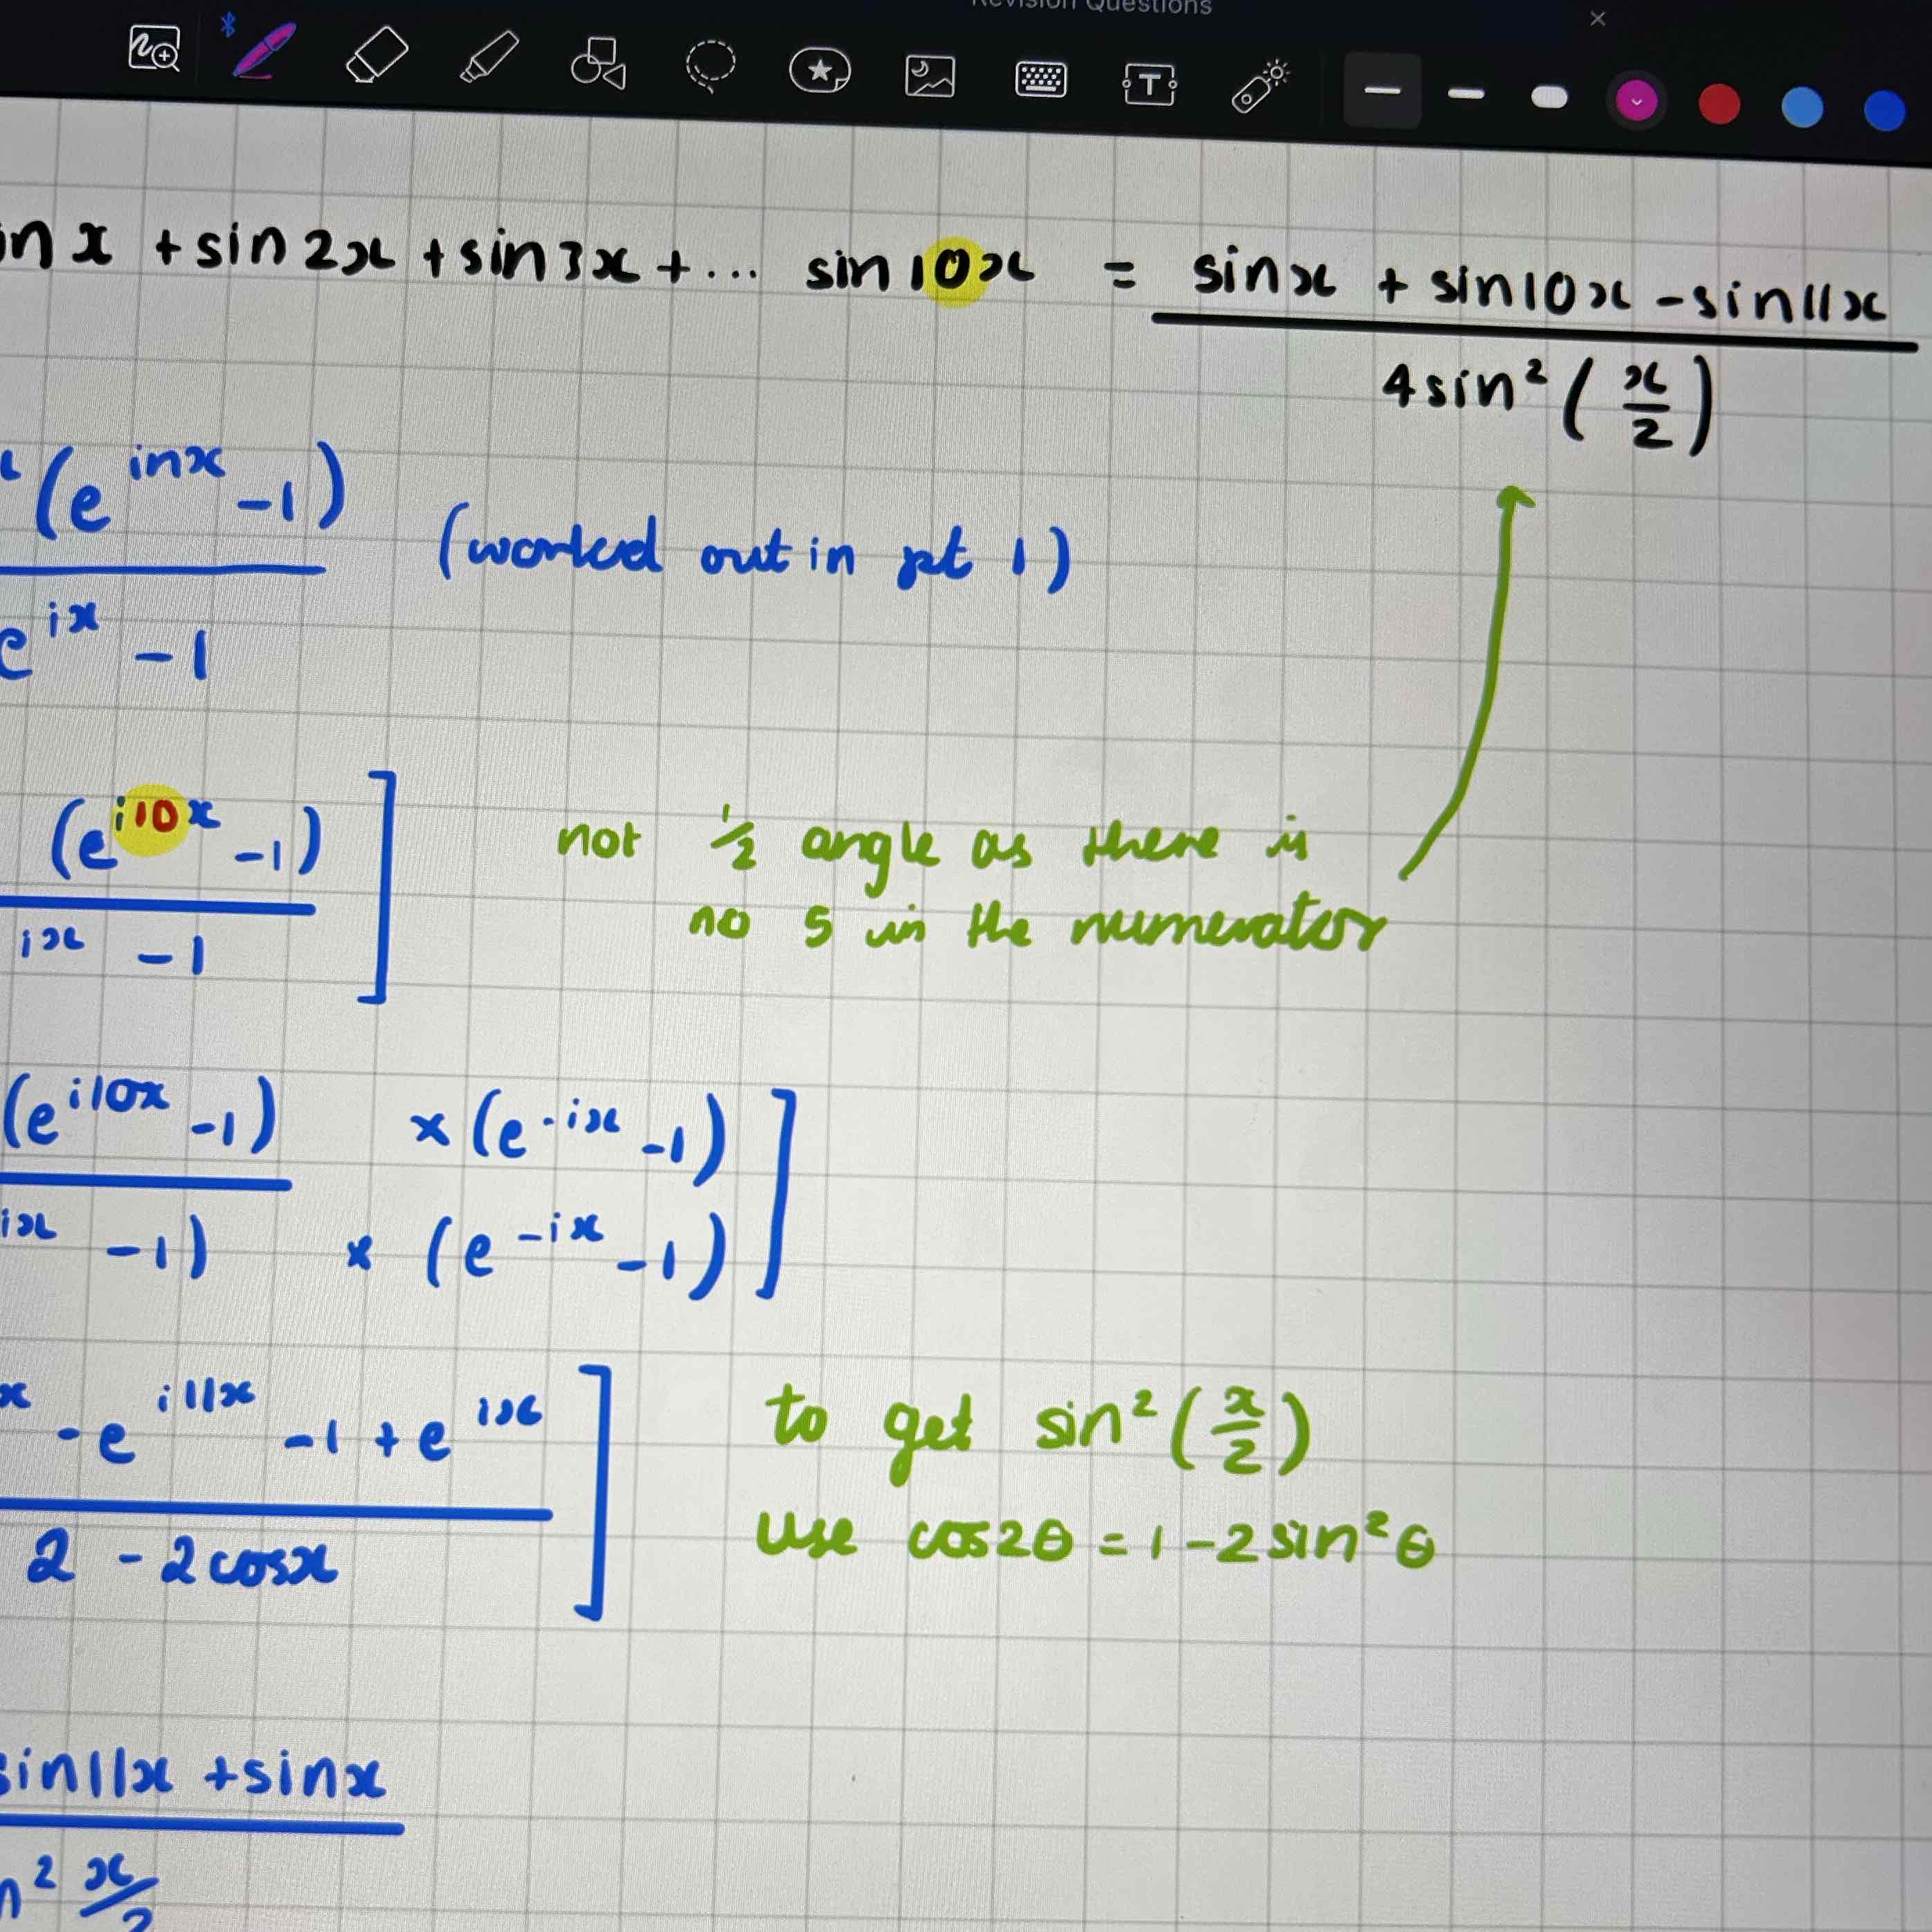 Revision Questions
in x + sin 2x + sin 3x + ... sin 10x = sinx + sin10x - sin11x
4 sin² (x/2)
(e^inx - 1)
(worked out in pt 1)
e^ix - 1
(e^i10x - 1) ]
not ½ angle as there is
no 5 in the numerator
ix - 1
(e^i10x - 1) × (e^-ix - 1) ]
ix - 1) × (e^-ix - 1)
x - e^i11x - 1 + e^ix ]
to get sin² (x/2)
2 - 2cosx
use cos2θ = 1 - 2 sin²θ
sin11x + sinx
n² x/2